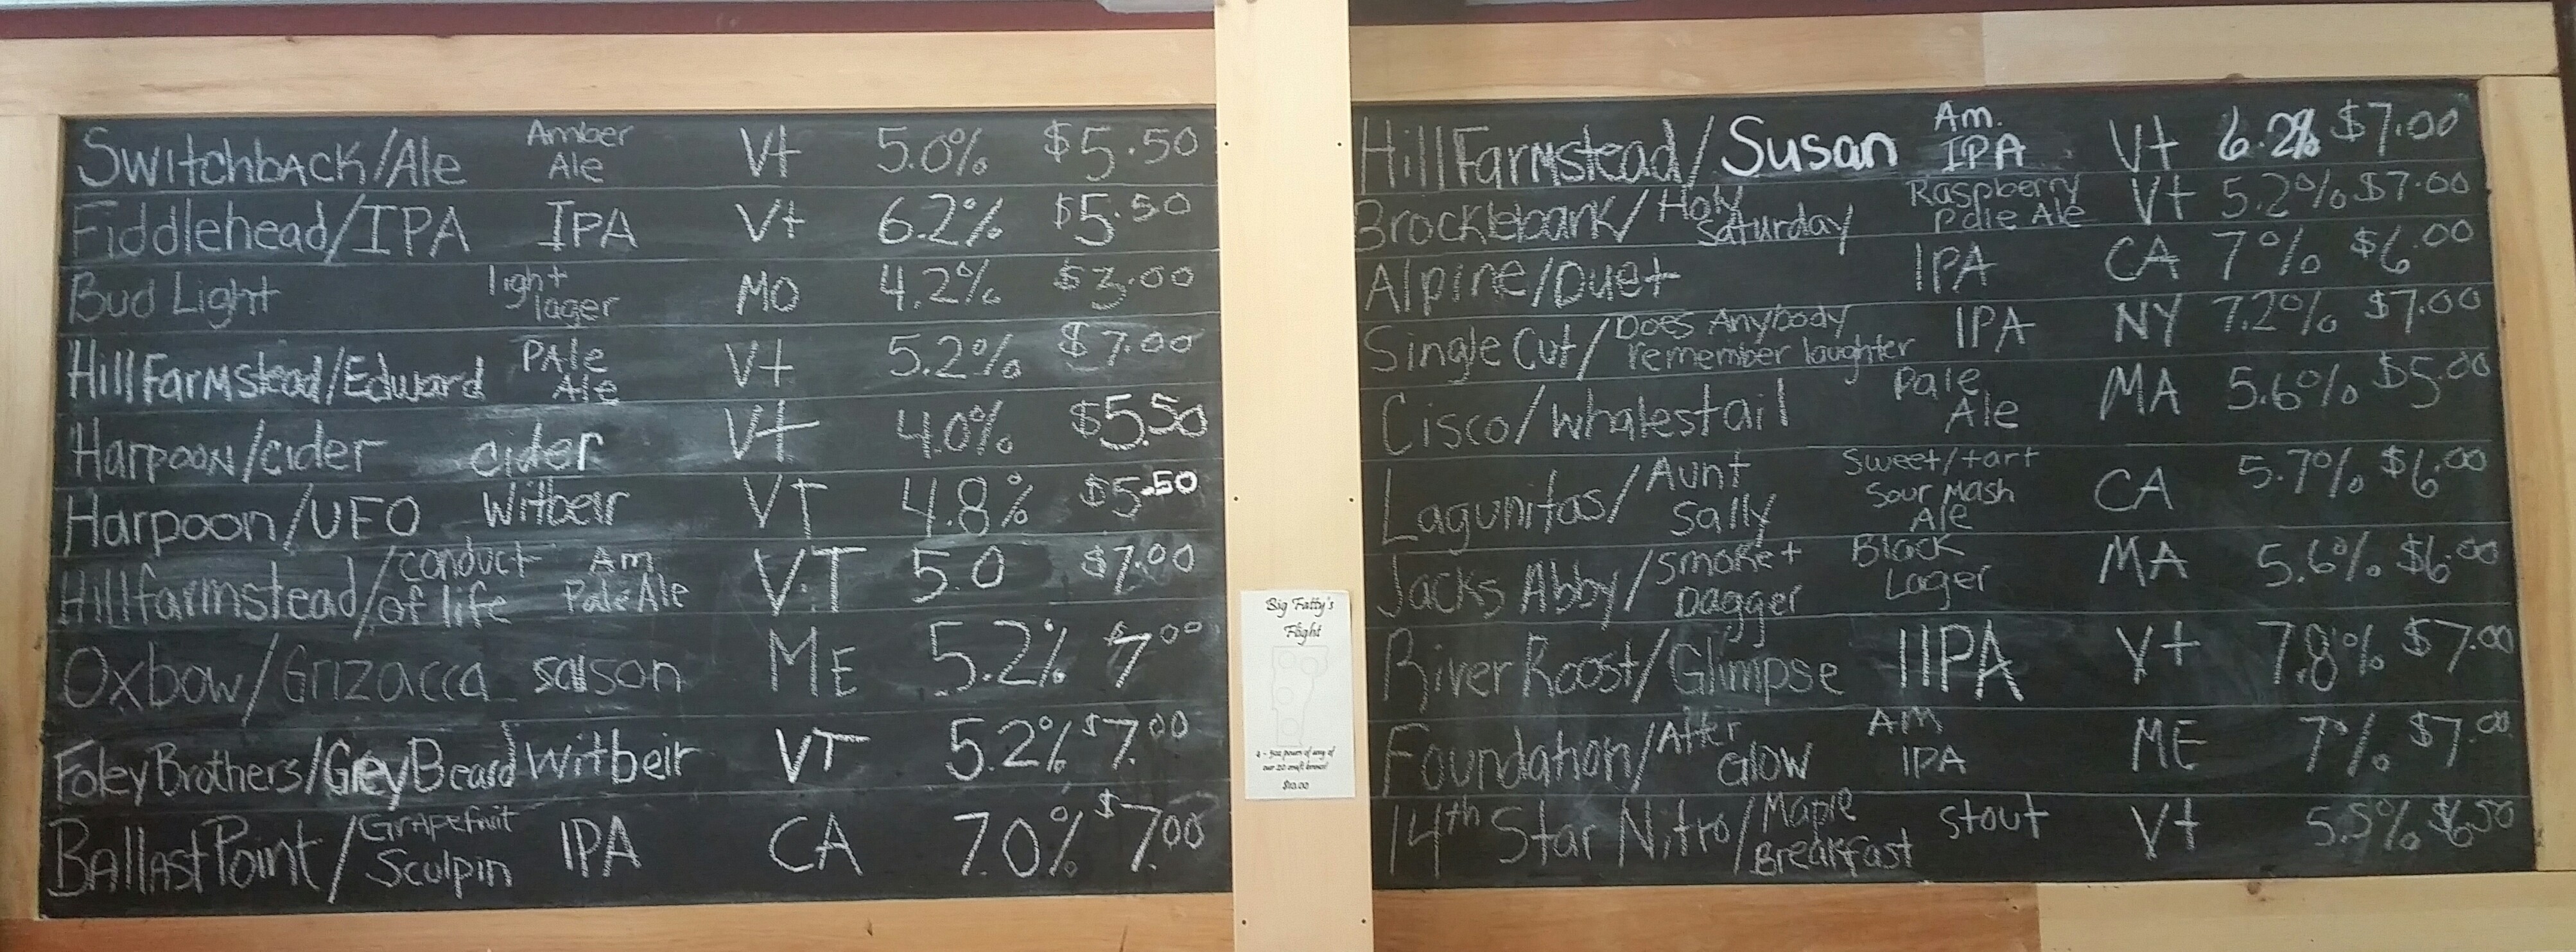 Switchback/Ale Amber Ale Vt 5.0% $5.50
Fiddlehead/IPA IPA Vt 6.2% $5.50
Bud Light light lager MO 4.2% $3.00
Hill Farmstead/Edward Pale Ale Vt 5.2% $7.00
Harpoon/cider cider Vt 4.0% $5.50
Harpoon/UFO Witbeir VT 4.8% $5.50
Hillfarmstead/conduct of life Am Pale Ale VT 5.0 $7.00
Oxbow/Grizacca saison ME 5.2% $7.00
Foley Brothers/Grey Beard Witbeir VT 5.2% $7.00
Ballast Point/Grapefruit Sculpin IPA CA 7.0% $7.00
Big Fatty's
Flight
4 - 5oz pours of any of
our 20 craft brews!
$10.00
Hill Farmstead/Susan Am. IPA Vt 6.2% $7.00
Brocklebank/Holy Saturday Raspberry Pale Ale Vt 5.2% $7.00
Alpine/Duet IPA CA 7% $6.00
Single Cut/Does Anybody remember laughter IPA NY 7.2% $7.00
Cisco/Whalestail Pale Ale MA 5.6% $5.00
Lagunitas/Aunt Sally Sweet/tart Sour Mash Ale CA 5.7% $6.00
Jacks Abby/Smoke + Dagger Black Lager MA 5.6% $6.00
River Roost/Glimpse IIPA Vt 7.8% $7.00
Foundation/After Glow Am IPA ME 7% $7.00
14th Star Nitro/Maple Breakfast Stout Vt 5.5% $6.50